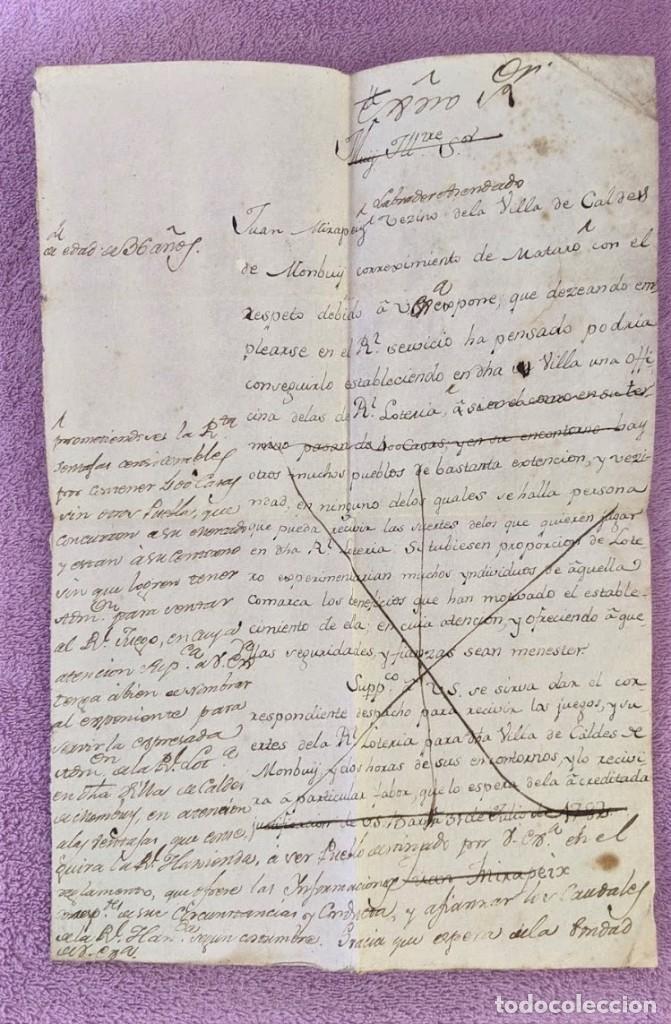 Exmo Sor.
Muy Illtre Sor
Labrador Arendado
Juan Mirapeix Vezino dela Villa de Caldes
de edad de 36 años.
de Monbuy correximiento de Mataro con el
respeto debido â V expone; que dezeando em
plearse en el Rl. servicio ha pensado podria
conseguirlo estableciendo en dha Villa una offi
cina delas de Rl. Loteria, â
mino pasan de 400 Casas, y en su encontorno hay
otros muchos pueblos de bastanta extencion, y vezi
ndad, en ninguno delos quales se halla persona
que pueda recivir las suertes delos que quieren jugar
en dha Rl. Loteria. Si tubiesen proporcion de Lote
ro experimentarian muchos yndividuos de âquella
Comarca los beneficios que han motivado el estable
cimiento de ela; en cuia atencion, y ofreciendo â que
llas seguridades, y fianzas sean menester.
Suppco. â V.S. se sirva dar el cor
respondiente despacho para recivir los juegos, y su
ertes dela Rl. Loteria para dha Villa de Caldes de
Monbuy y dos horas de sus encontornos, y lo recivi
ra â particular fabor, que lo espera dela âcreditada
justificacion de V.S. Barna 31 de Julio de
Juan Mirapeix
prometiendose la Rta
ventajas considerables
por contener 400 Casas
sin otros Pueblos, que
concurren a su mercado
y estan â su contorno
sin que logren tener
Admon para sentar
al Rl. Juego, en cuya
atencion Supca. a V. Exa
tenga âbien de nombrar
al exponiente para
servir la expresada
Admon de la Rl. Lota
en dha Villa de Caldes
de Monbuy, en atencion
a las ventajas que conse
guira la Rl. Hazienda, a ser Pueblo designado por V. Exa en el
reglamento, que ofrece las Informaciones
de sus Circunstancias y Conducta, y afianzar los Caudales
de la Rl. Hazda segun costumbre. Gracia que espera de la bondad
de V. Exa
todocoleccion